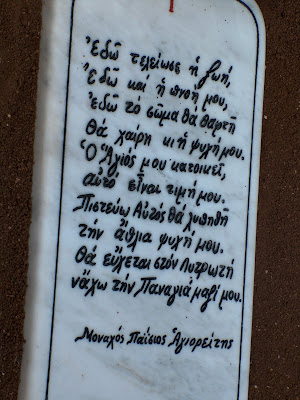 Ἐδῶ τελείωσε ἡ ζωή,
Ἐδῶ καί ἡ πνοή μου,
ἐδῶ τό σῶμα θά θαφτῆ
Θά χαίρη κι ἡ ψυχή μου.
Ὁ Ἅγιός μου κατοικεῖ,
αὐτό εἶναι τιμή μου.
Πιστεύω Αὐτός θά λυπηθῆ
τήν ἄθλια ψυχή μου.
Θά εὔχεται στόν Λυτρωτή
νἄχω τήν Παναγιά μαζί μου.
Μοναχός Παΐσιος Ἁγιορείτης